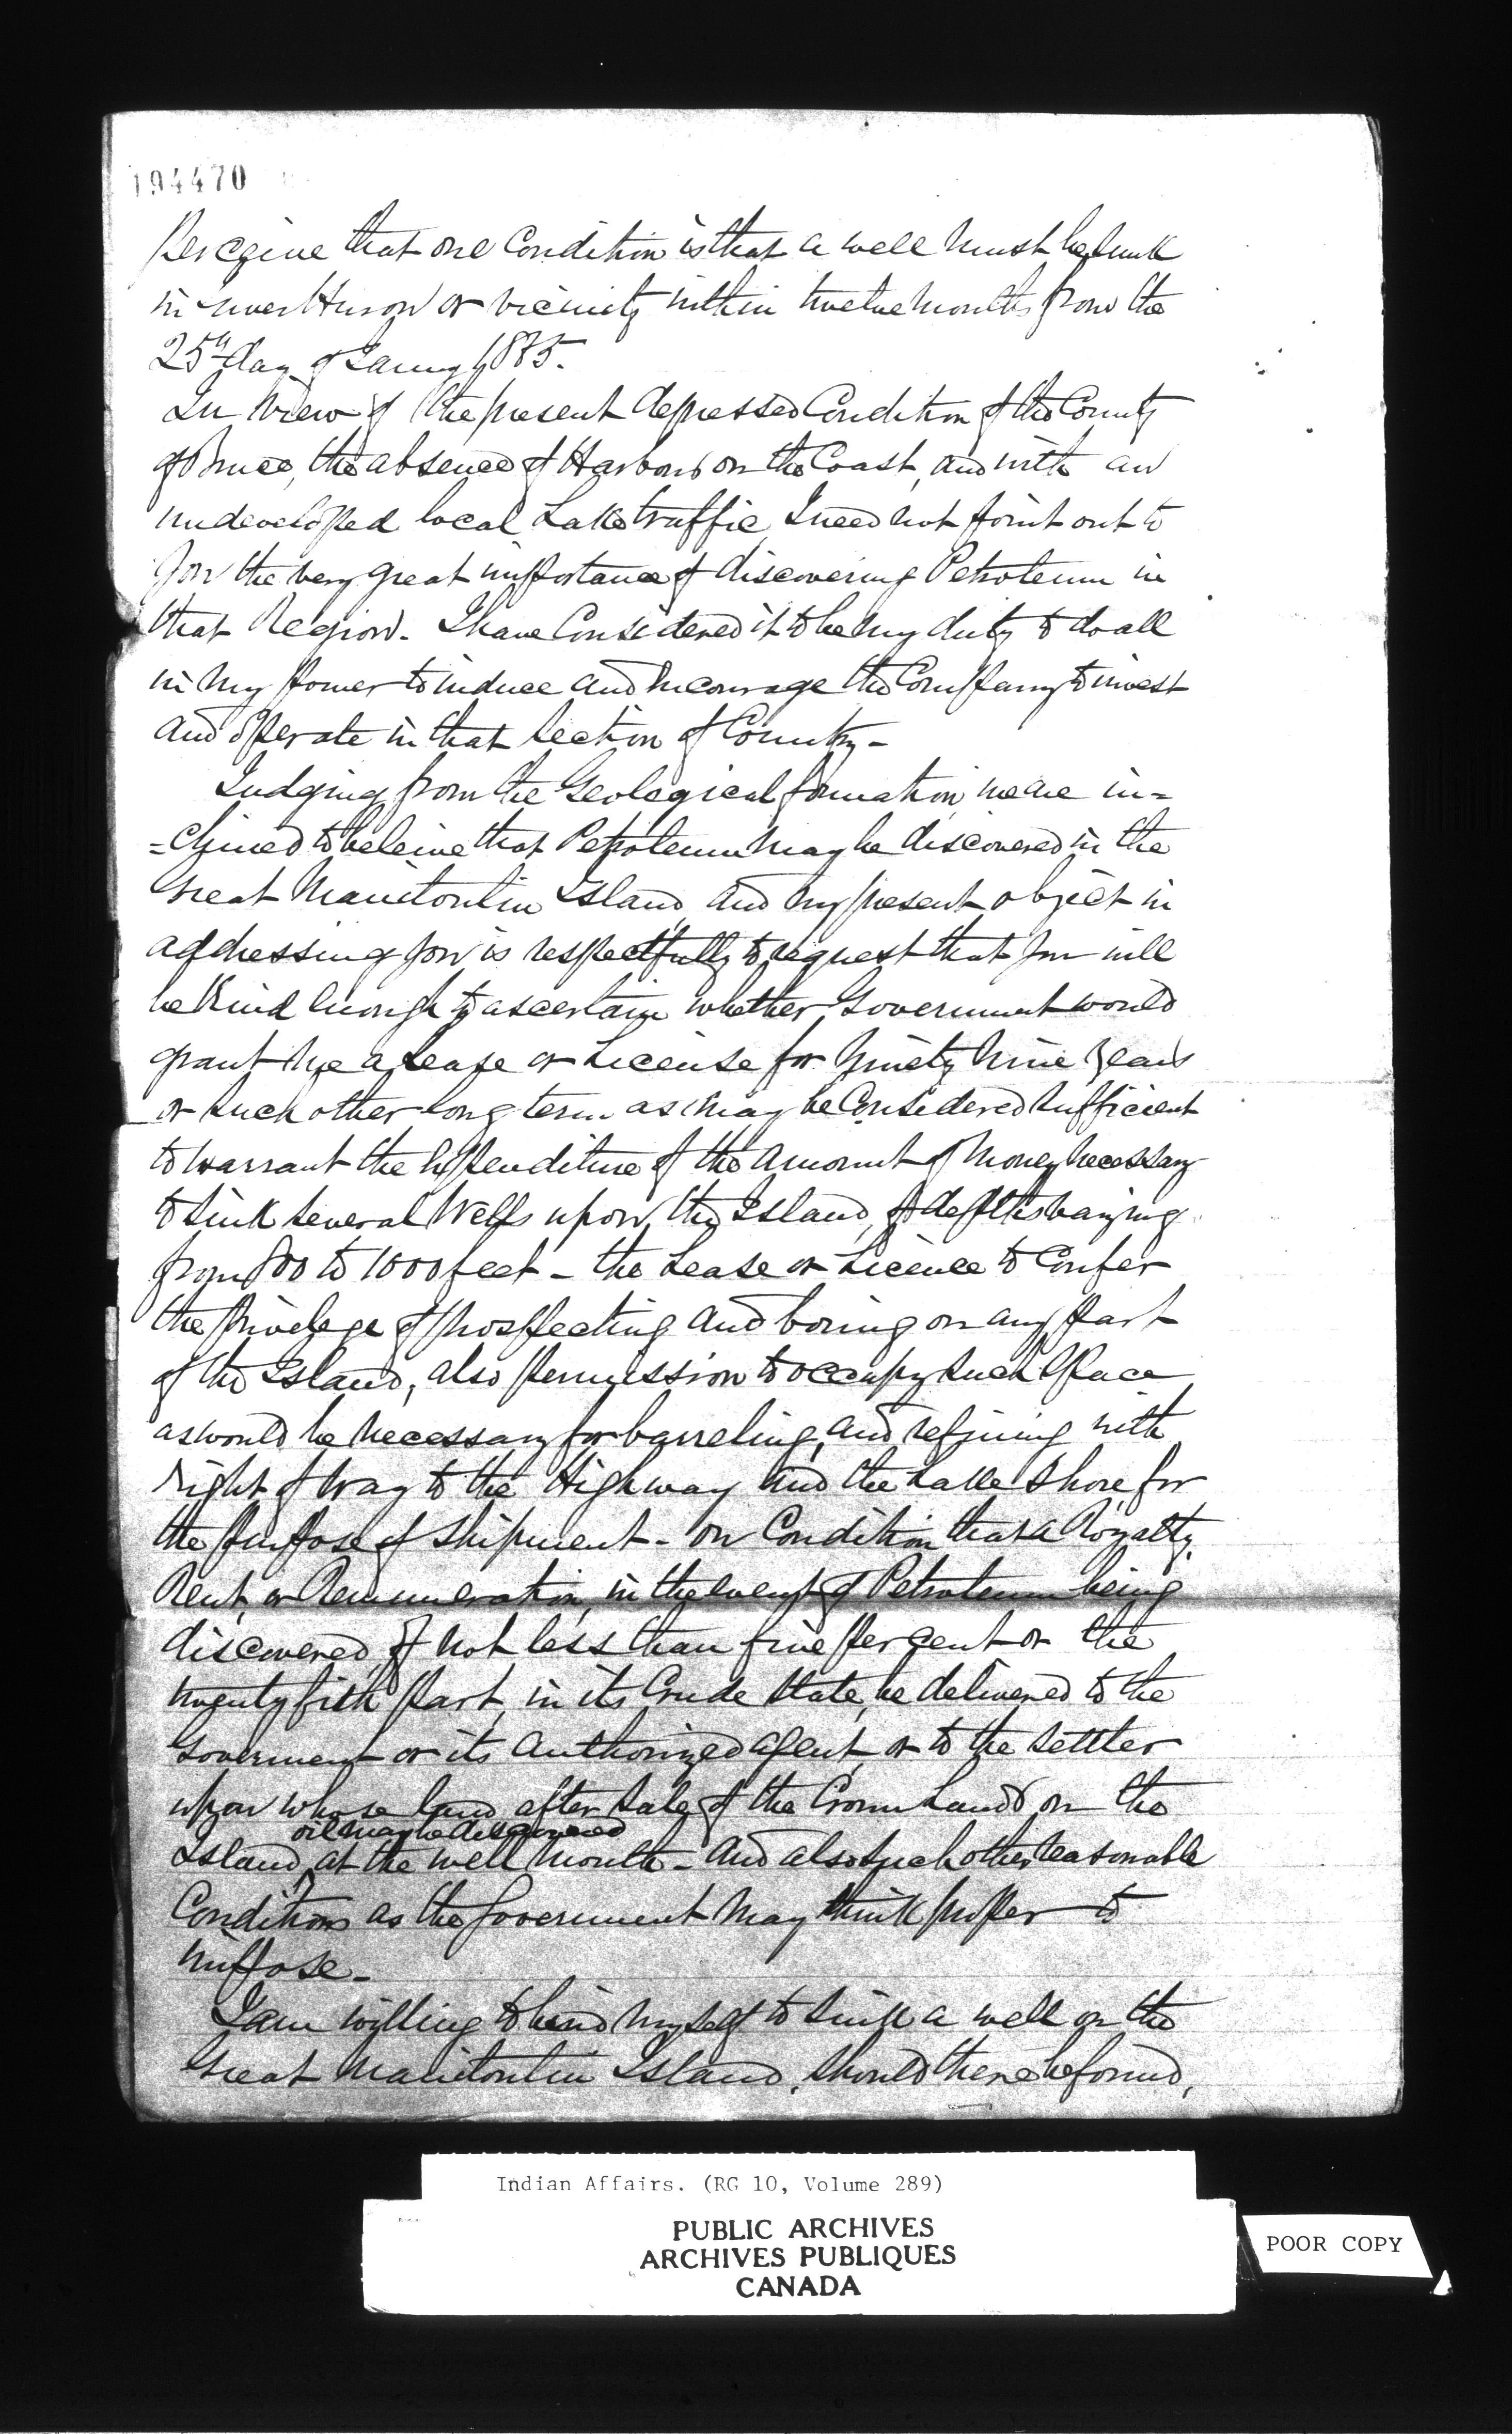 194470
Perceive that one Condition is that a well must be sunk
in Huron or vicinity within twelve months from the
25th day of 1865.
In view of the present depressed Condition of the County
of Bruce, the absence of Harbours on the Coast, and with an
undeveloped local Lake traffic, I need not point out to
you the very great importance of discovering Petroleum in
that Region. I have Considered it to be my duty to do all
in my power to induce and encourage the Company to invest
and operate in that section of Country -
Judging from the Geological formation, we are in=
=clined to beleive that Petroleum may be discovered in the
Great Manitoulin Island, and my present object in
addressing you is respectfully to request that you will
be kind enough to ascertain whether Government would
grant me a Lease or License for Ninety Nine Years
or such other long term as may be Considered sufficient
to warrant the expenditure of the amount of money necessary
to sink several Wells upon the Island, of depths varying
from 800 to 1000 feet - the Lease or Licence to Confer
the privelege of prospecting and boring on any part
of the Island, also permission to occupy such space
as would be necessary for barreling, and refining with
right of way to the Highway and the Lake Shore for
the purpose of Shipment - on Condition that a Royalty,
Rent, or Renumeration, in the event of Petroleum being
discovered, of not less than five per cent or the
twenty fifth part, in its Crude state, be delivered to the
Goverment or its Authorized agent, or to the settler
upon whose land after sale of the Crown Lands on the
oil may be discovered
Island, at the well mouth - And also such other reasonable
Conditions as the Government may think proper to
impose -
I am willing to bind myself to sink a well on the
Great Manitoulin Island, should there be found,
Indian Affairs. (RG 10, Volume 289)
PUBLIC ARCHIVES
ARCHIVES PUBLIQUES
CANADA
POOR COPY